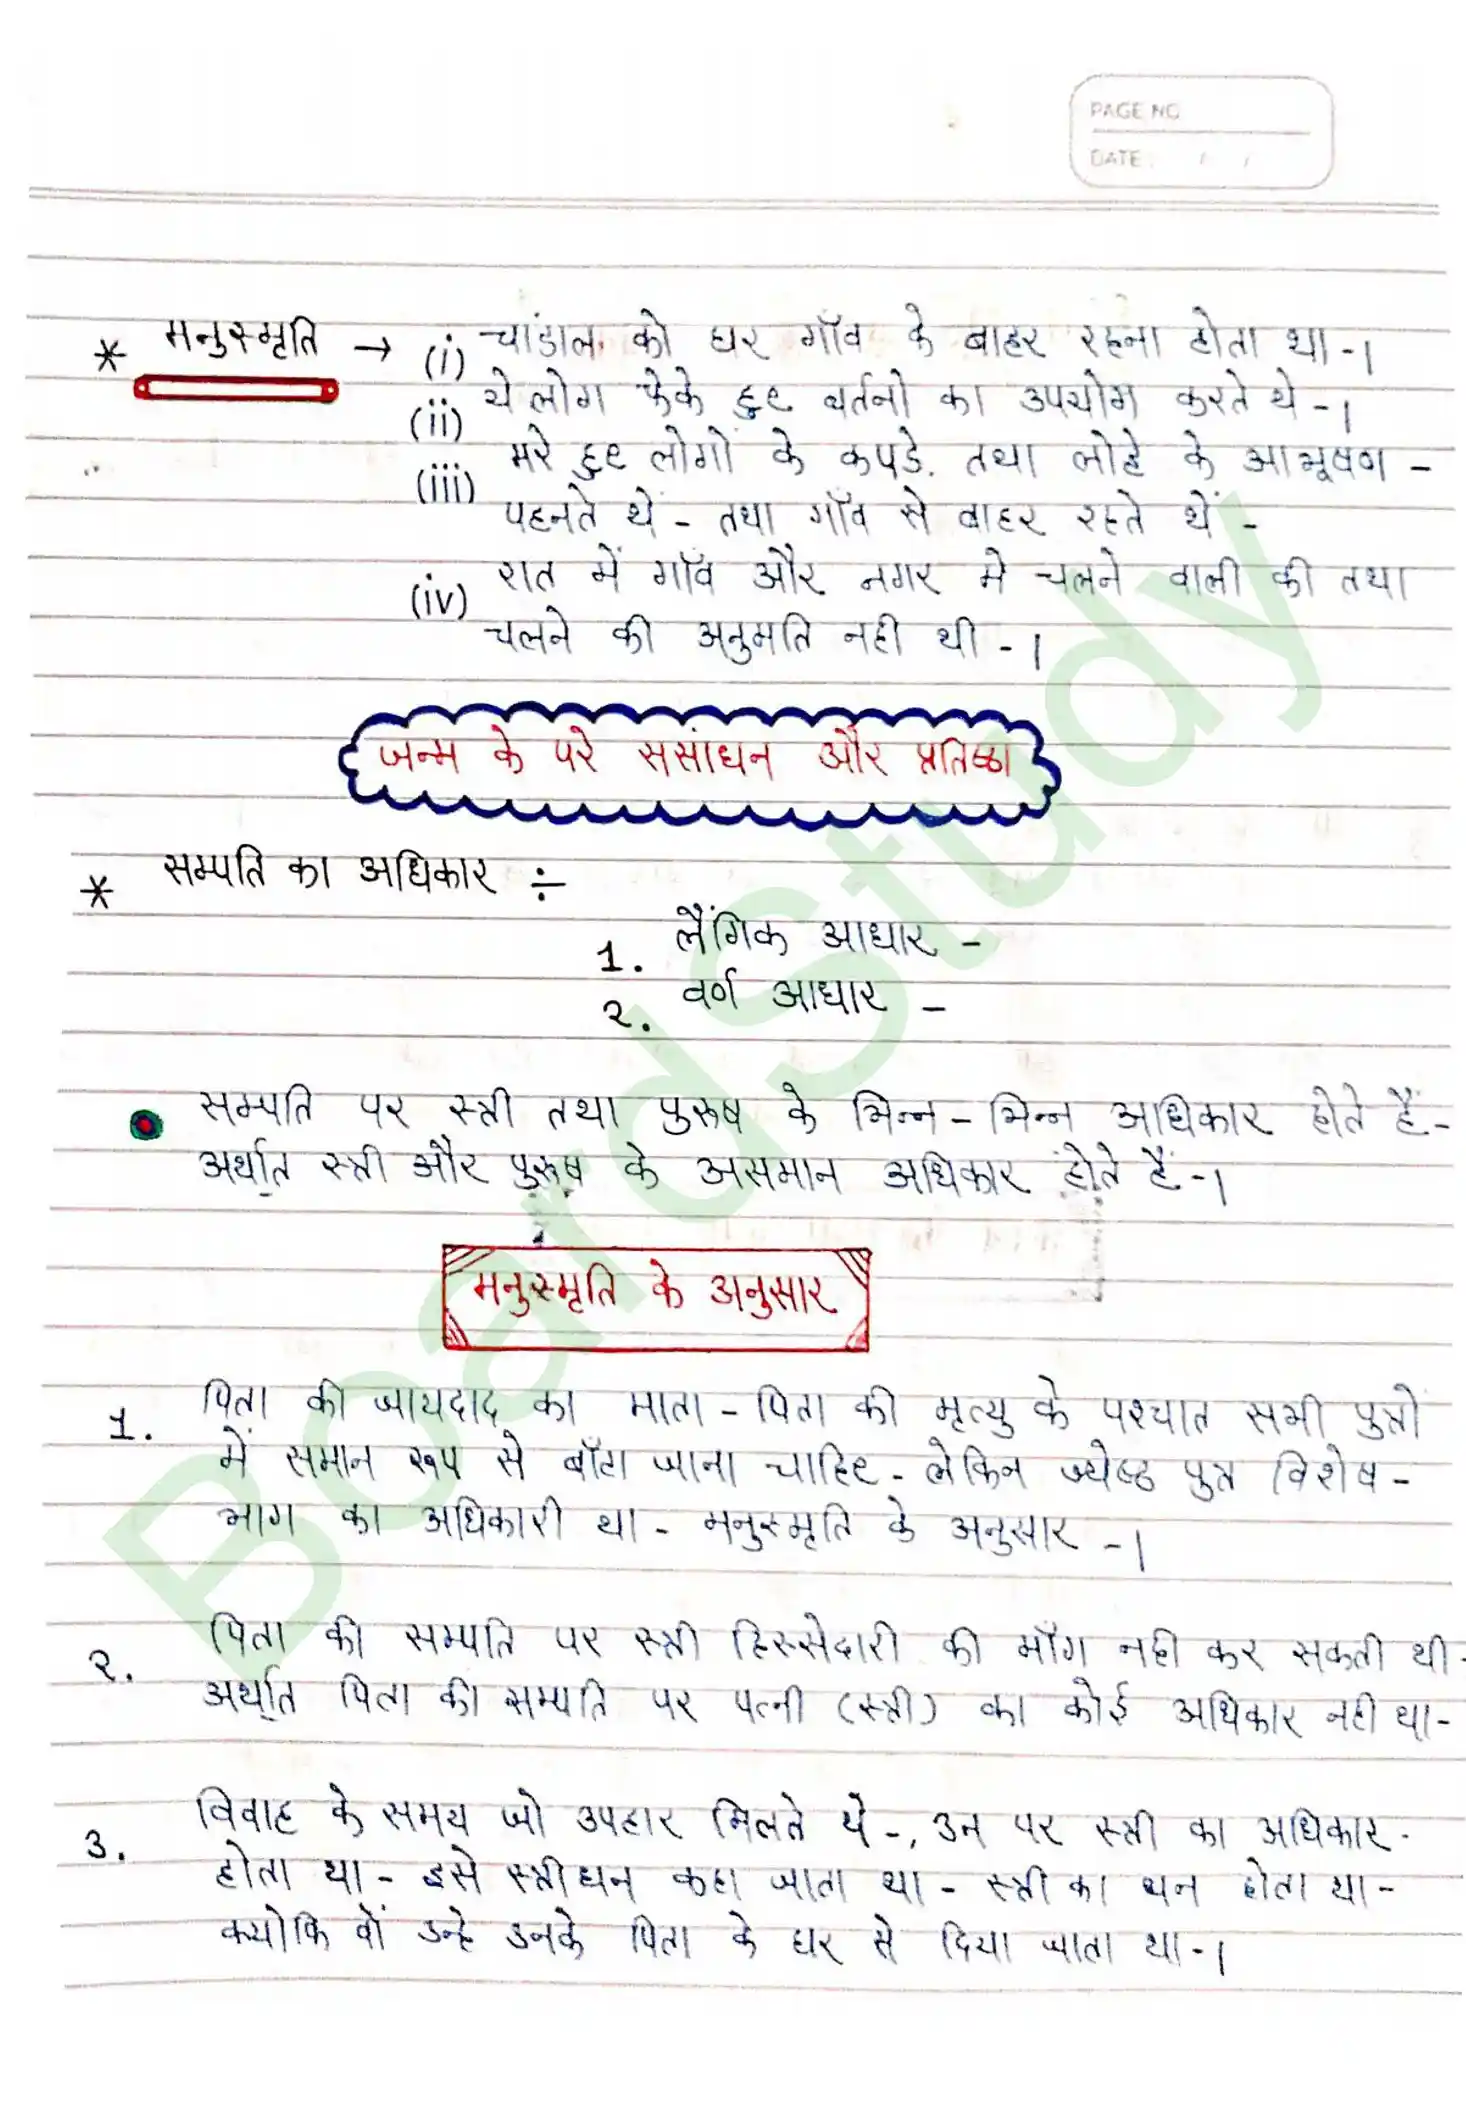 PAGE NO
DATE: / /
* मनुस्मृति → (i) चांडाल को घर गाँव के बाहर रहना होता था -।
(ii) ये लोग फेके हुए बर्तनो का उपयोग करते थे -।
(iii) मरे हुए लोगों के कपडे. तथा लोहे के आभूषण -
पहनते थें - तथा गाँव से बाहर रहते थें -
(iv) रात में गाँव और नगर मे चलने वाली की तथा
चलने की अनुमति नही थी -।
जन्म के परे ससांधन और प्रतिष्ठा
* सम्पति का अधिकार ÷
1. लैंगिक आधार -
२. वर्ण आधार -
सम्पति पर स्त्री तथा पुरुष के भिन्न - भिन्न अधिकार होते हैं-
अर्थात स्त्री और पुरुष के असमान अधिकार होते हैं -।
मनुस्मृति के अनुसार
1. पिता की जायदाद का माता - पिता की मृत्यु के पश्यात सभी पुत्रो
में समान रूप से बाँटा जाना चाहिए - लेकिन ज्येष्ठ पुत्र विशेष -
भाग का अधिकारी था - मनुस्मृति के अनुसार -।
२. पिता की सम्पति पर स्त्री हिस्सेदारी की माँग नही कर सकती थी-
अर्थात पिता की सम्पति पर पत्नी (स्त्री) का कोई अधिकार नही था-
3. विवाह के समय जो उपहार मिलते थे -, उन पर स्त्री का अधिकार -
होता था - इसे स्त्रीधन कहा जाता था - स्त्री का धन होता था -
क्योकि वों उन्हे उनके पिता के घर से दिया जाता था -।
BoardStudy